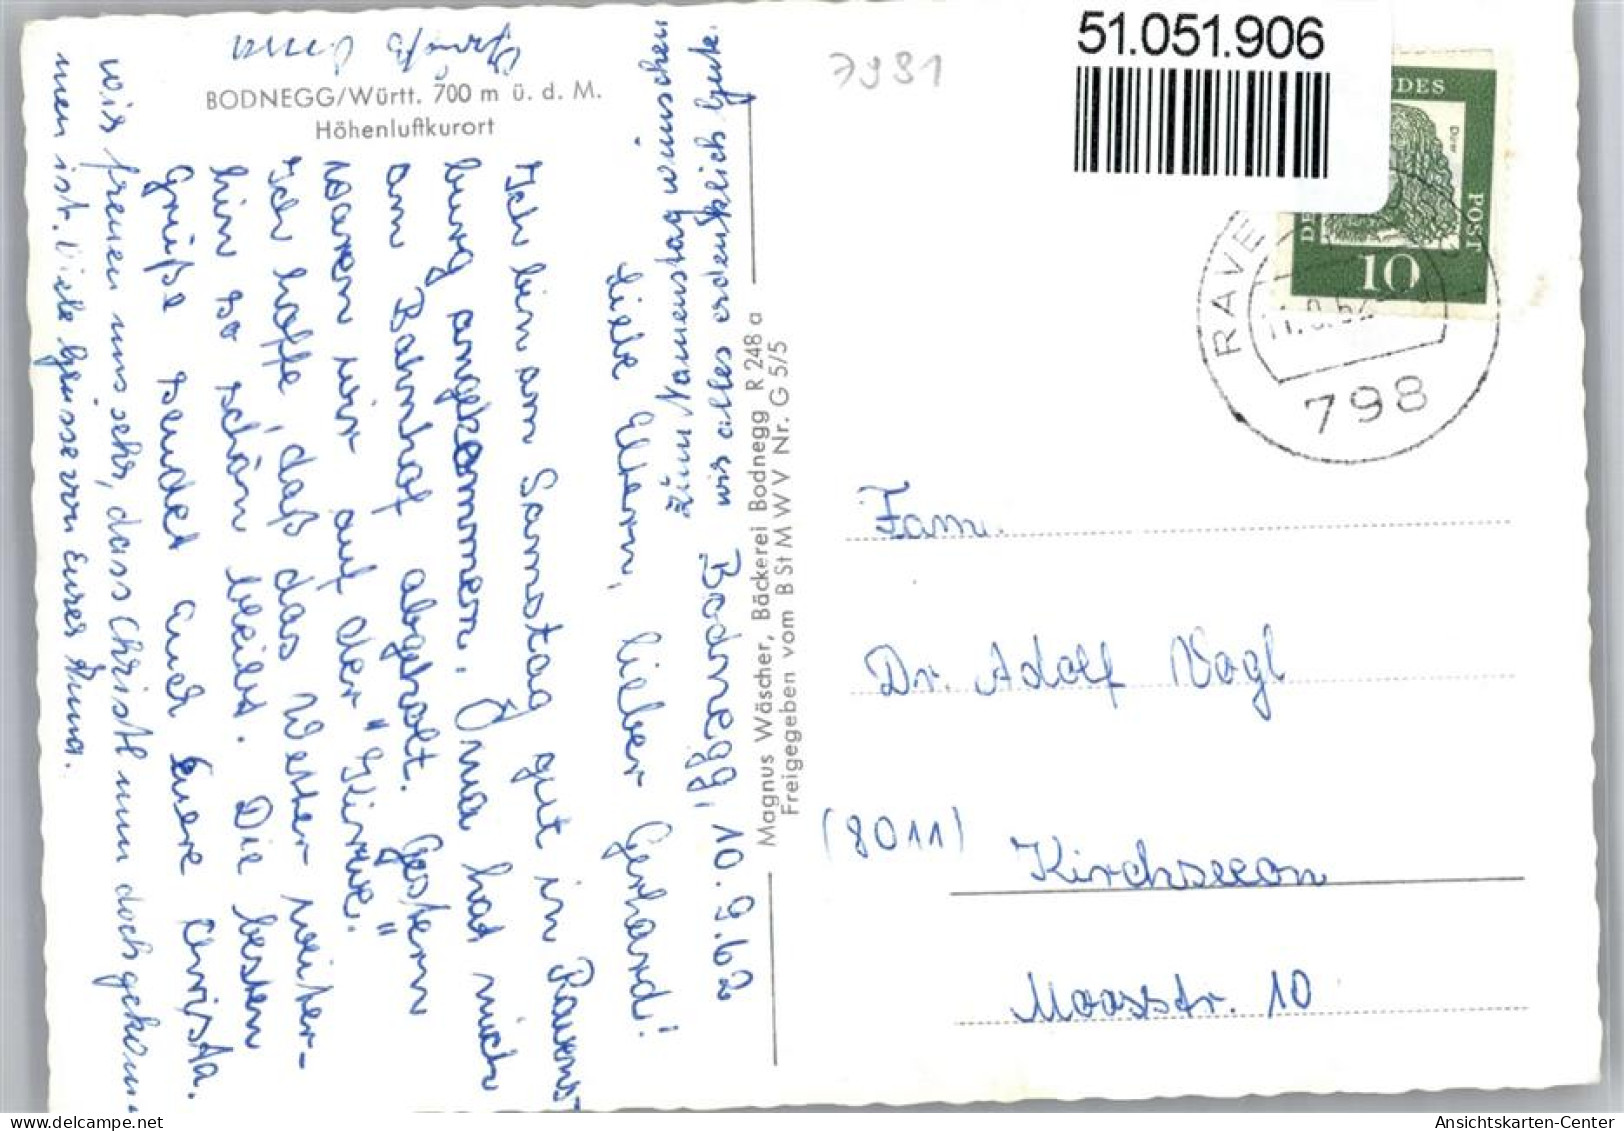 51.051.906
7981
BODNEGG/Württ. 700 m ü. d. M.
Höhenluftkurort
Bodnegg, 10.9.62
Liebe Eltern, lieber Gerhard!
Ich bin am Samstag gut in Ravens-
burg angekommen. Oma hat mich
am Bahnhof abgeholt. Gestern
waren wir auf der "Kirwe."
Ich hoffe, daß das Wetter weiter-
hin so schön bleibt. Die besten
Grüße sendet Euch Eure Christa.
wir freuen uns sehr, dass Christl nun doch gekom-
men ist. Viele Grüsse von Eurer Anna.
Zum Namenstag wünschen
wir alles erdenklich Gute.
Gruß Oma
Magnus Wäscher, Bäckerei Bodnegg R 248 a
Freigegeben vom B St M W V Nr. G 5/5
DES
POST
10
RAVE
798
Fam.
Dr. Adolf Vogl
(8011) Kirchseeon
Moosstr. 10
Ansichtskarten-Center